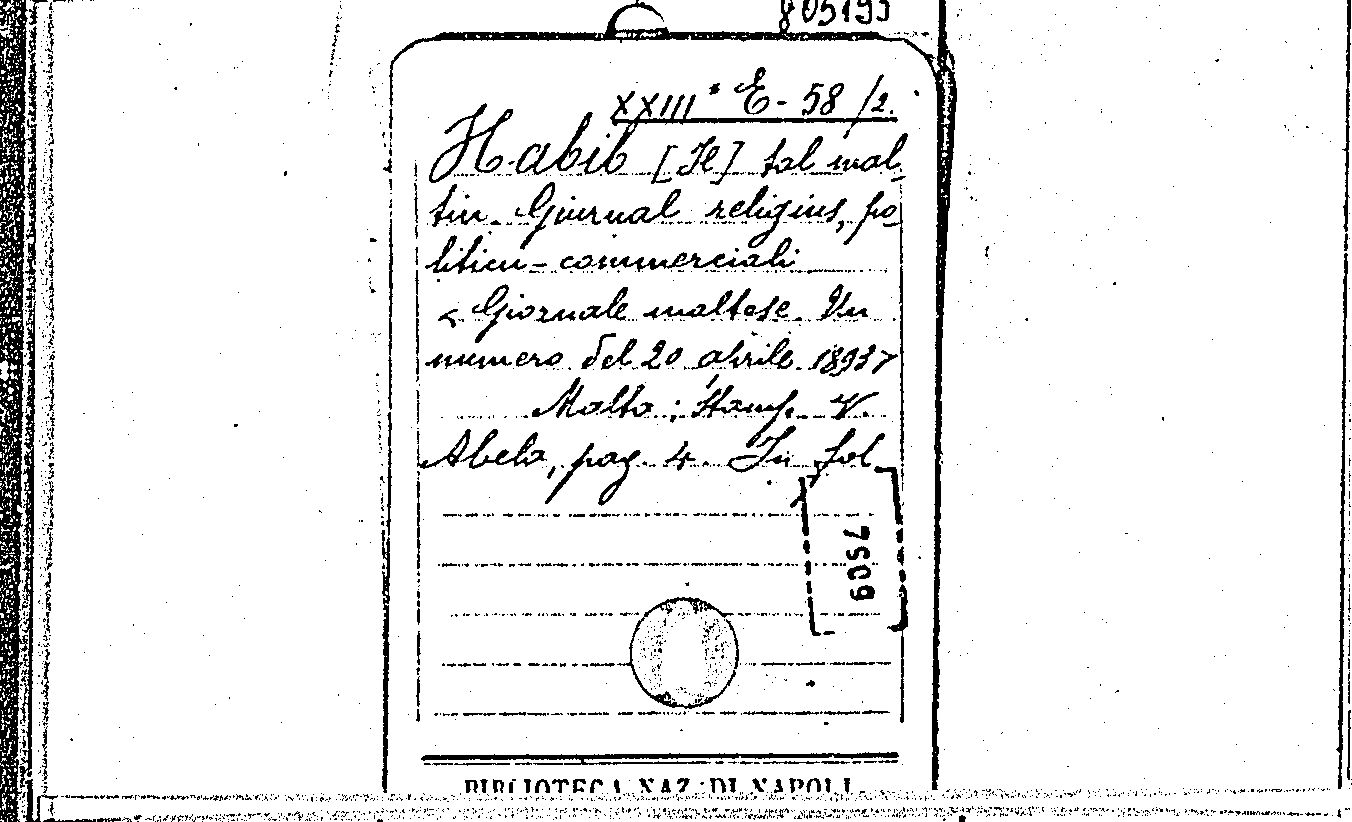 805195
XXIIIª E-58/2.
Habib [Il] tal mal-
tin. Giurnal religius, po-
liticu-commerciali
< Giornale maltese. Un
numero del 20 abrile 1893>
Malta: Stamp. V.
Abela, pag. 4. In fol.
7509
BIBLIOTECA NAZ. DI NAPOLI